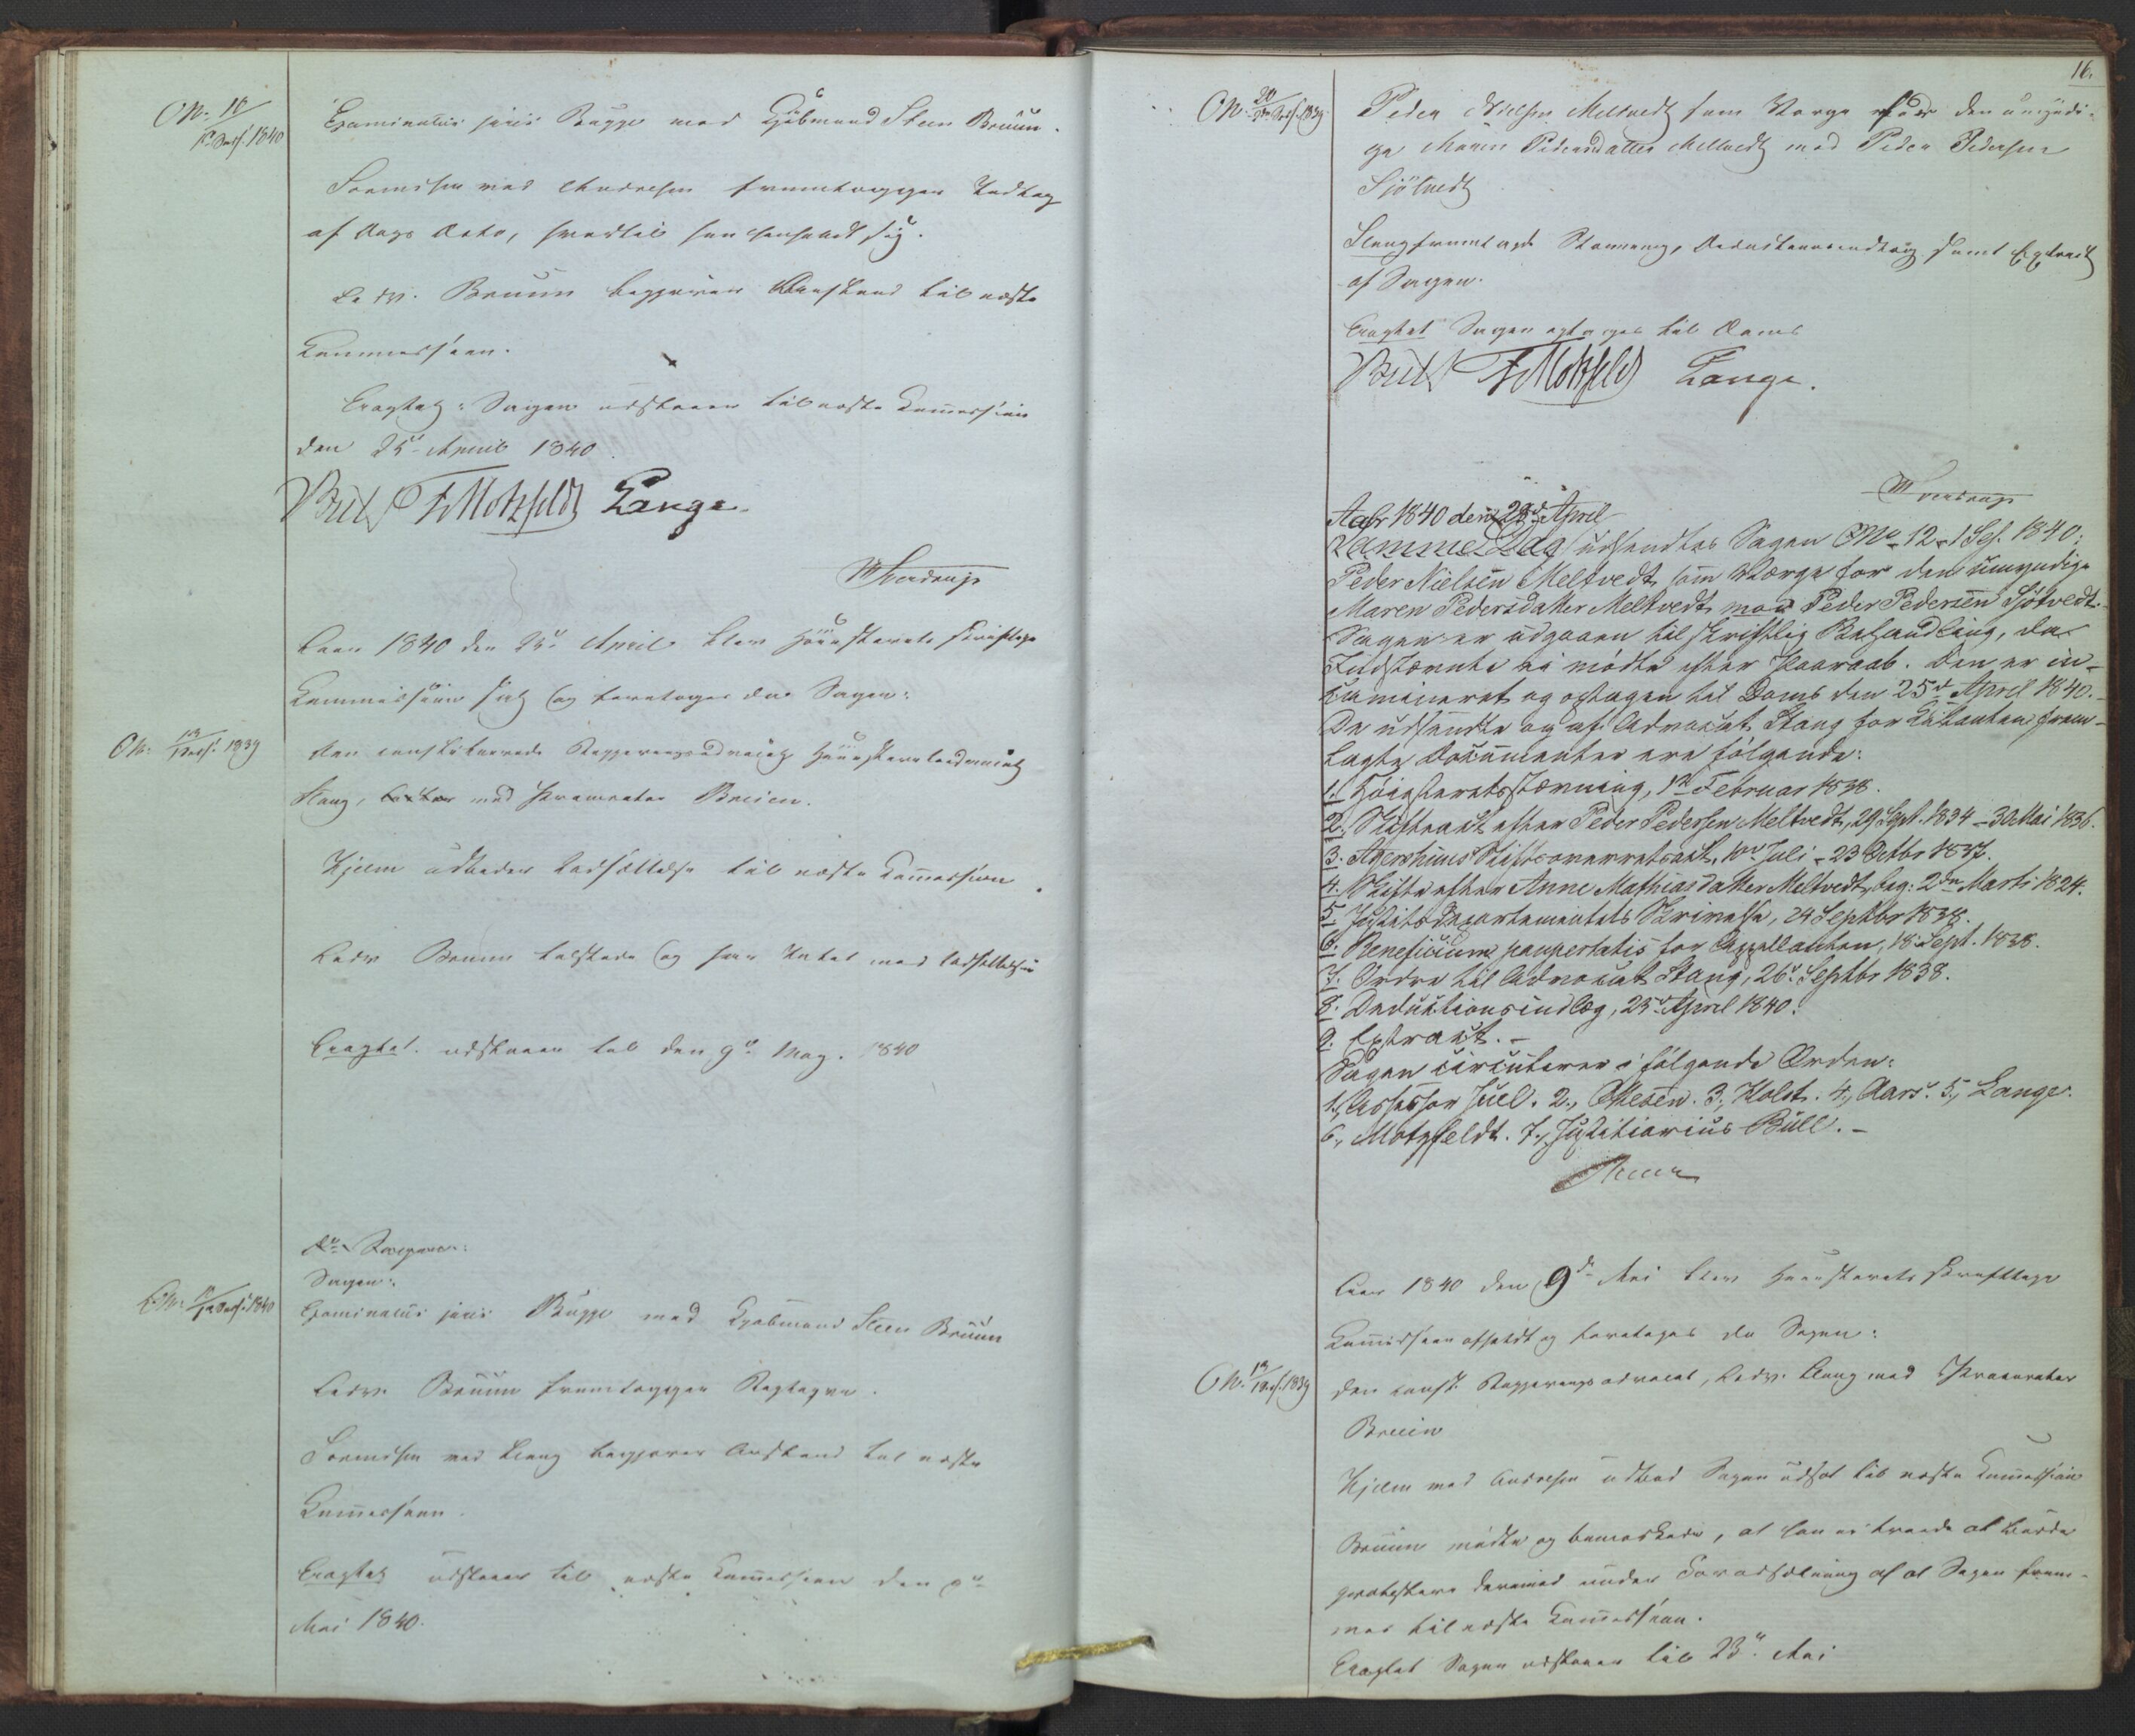 No. 10/1ste Sess. 1840
Examinatus juris Bugge mod Kjøbmand Steen Bruun.
Sörensen med Andresen fremlægger Indlæg
af Dags Dato, hvortil han henholdt sig.
Adv. Bruun begjærer Anstand til næste
Kommission.
Eragtet: Sagen udstaaer til næste Kommission
den 25 April 1840.
Bull F Motzfeldt Lange.
Aar 1840 den 25de April blev Høiesterets skriftlige
Kommission sat og foretoges da Sagen:
No. 13/1 Sess. 1839
Den constituerede Regjeringsadvocat Høiesteretsadvocat
Stang, mod Procurator Breien.
Hjelm udbeder Udsættelse til næste Commission.
Adv. Bruun tilstede og har Intet mod Udsættelsen
Eragtet. udstaaer til den 9de May. 1840
Sagen:
No. 10/1ste Sess. 1840
Examinatus juris Bugge mod Kjøbmand Steen Bruun
Adv. Bruun fremlægger
Sörensen med Stang begjærer Anstand til næste
Kommission.
Eragtet udstaaer til næste Commission den 9de
Mai 1840.
16.
No. 20/ Sess. 1839
Peder Nielsen Meltvedt som Værge for den umyndi-
ge Maren Pedersdatter Meltvedt mod Peder Pedersen
Sjötvedt
Stang fremlagde Stævning, Deductionsindlæg samt Extract
af Sagen.
Eragtet Sagen optages til Doms
Bull F Motzfeldt Lange.
Aar 1840 den 29de April
Samme Dag udsendtes Sagen No. 12 - 1 Ses. 1840:
Peder Nielsen Meltvedt som Værge for den umyndige
Maren Pedersdatter Meltvedt mod Peder Pedersen Sjötvedt.
Sagen er udgaaen til skriftlig Behandling, da
Indstævnte ei mödte efter Paaraab. Den er in-
camineret og optagen til Doms den 25de April 1840.-
De udsendte og af Advocat Stang for Citanten frem-
lagte Documenter ere følgende:
1. Høiesteretsstævning, 1ste Februar 1838.
2. Skifteact efter Peder Pedersen Meltvedt, 29 Sept. 1834 - 30 Mai 1836.
3. Agershuus Stiftsoverretsact, 10de Juli - 23 Octbr 1837.
4. Skifte efter Anne Mathiasdatter Meltvedt, beg: 2den Marts 1824.
5. Justitsdepartementets Skrivelse, 24 Septbr 1838.
6. Beneficium paupertatis for Appellanten, 18 Sept. 1838.
7. Ordre til Advocat Stang, 26de Septbr 1838.
8. Deductionsindlæg, 25de April 1840.
9. Extract. -
Sagen circulerer i følgende Orden:
1., Assessor Juel. 2., Ottesen. 3., Holst. 4., Aars. 5., Lange.
6., Motzfeldt. 7., Justitiarius Bull. -
Aar 1840 den 9de Mai blev Høiesterets skriftlige
Kommission afholdt og foretoges da Sagen:
No. 13/1 Sess. 1839
Den const. Regjeringsadvocat, Adv. Stang mod Procurator
Breien
Hjelm med Andresen udbad Sagen udsat til næste Kommission
Bruun mødte og bemærkede, at han ei troede at burde
protestere derimod under Forudsætning af at Sagen frem-
mes til næste Commission.
Eragtet Sagen udstaaer til 23de Mai